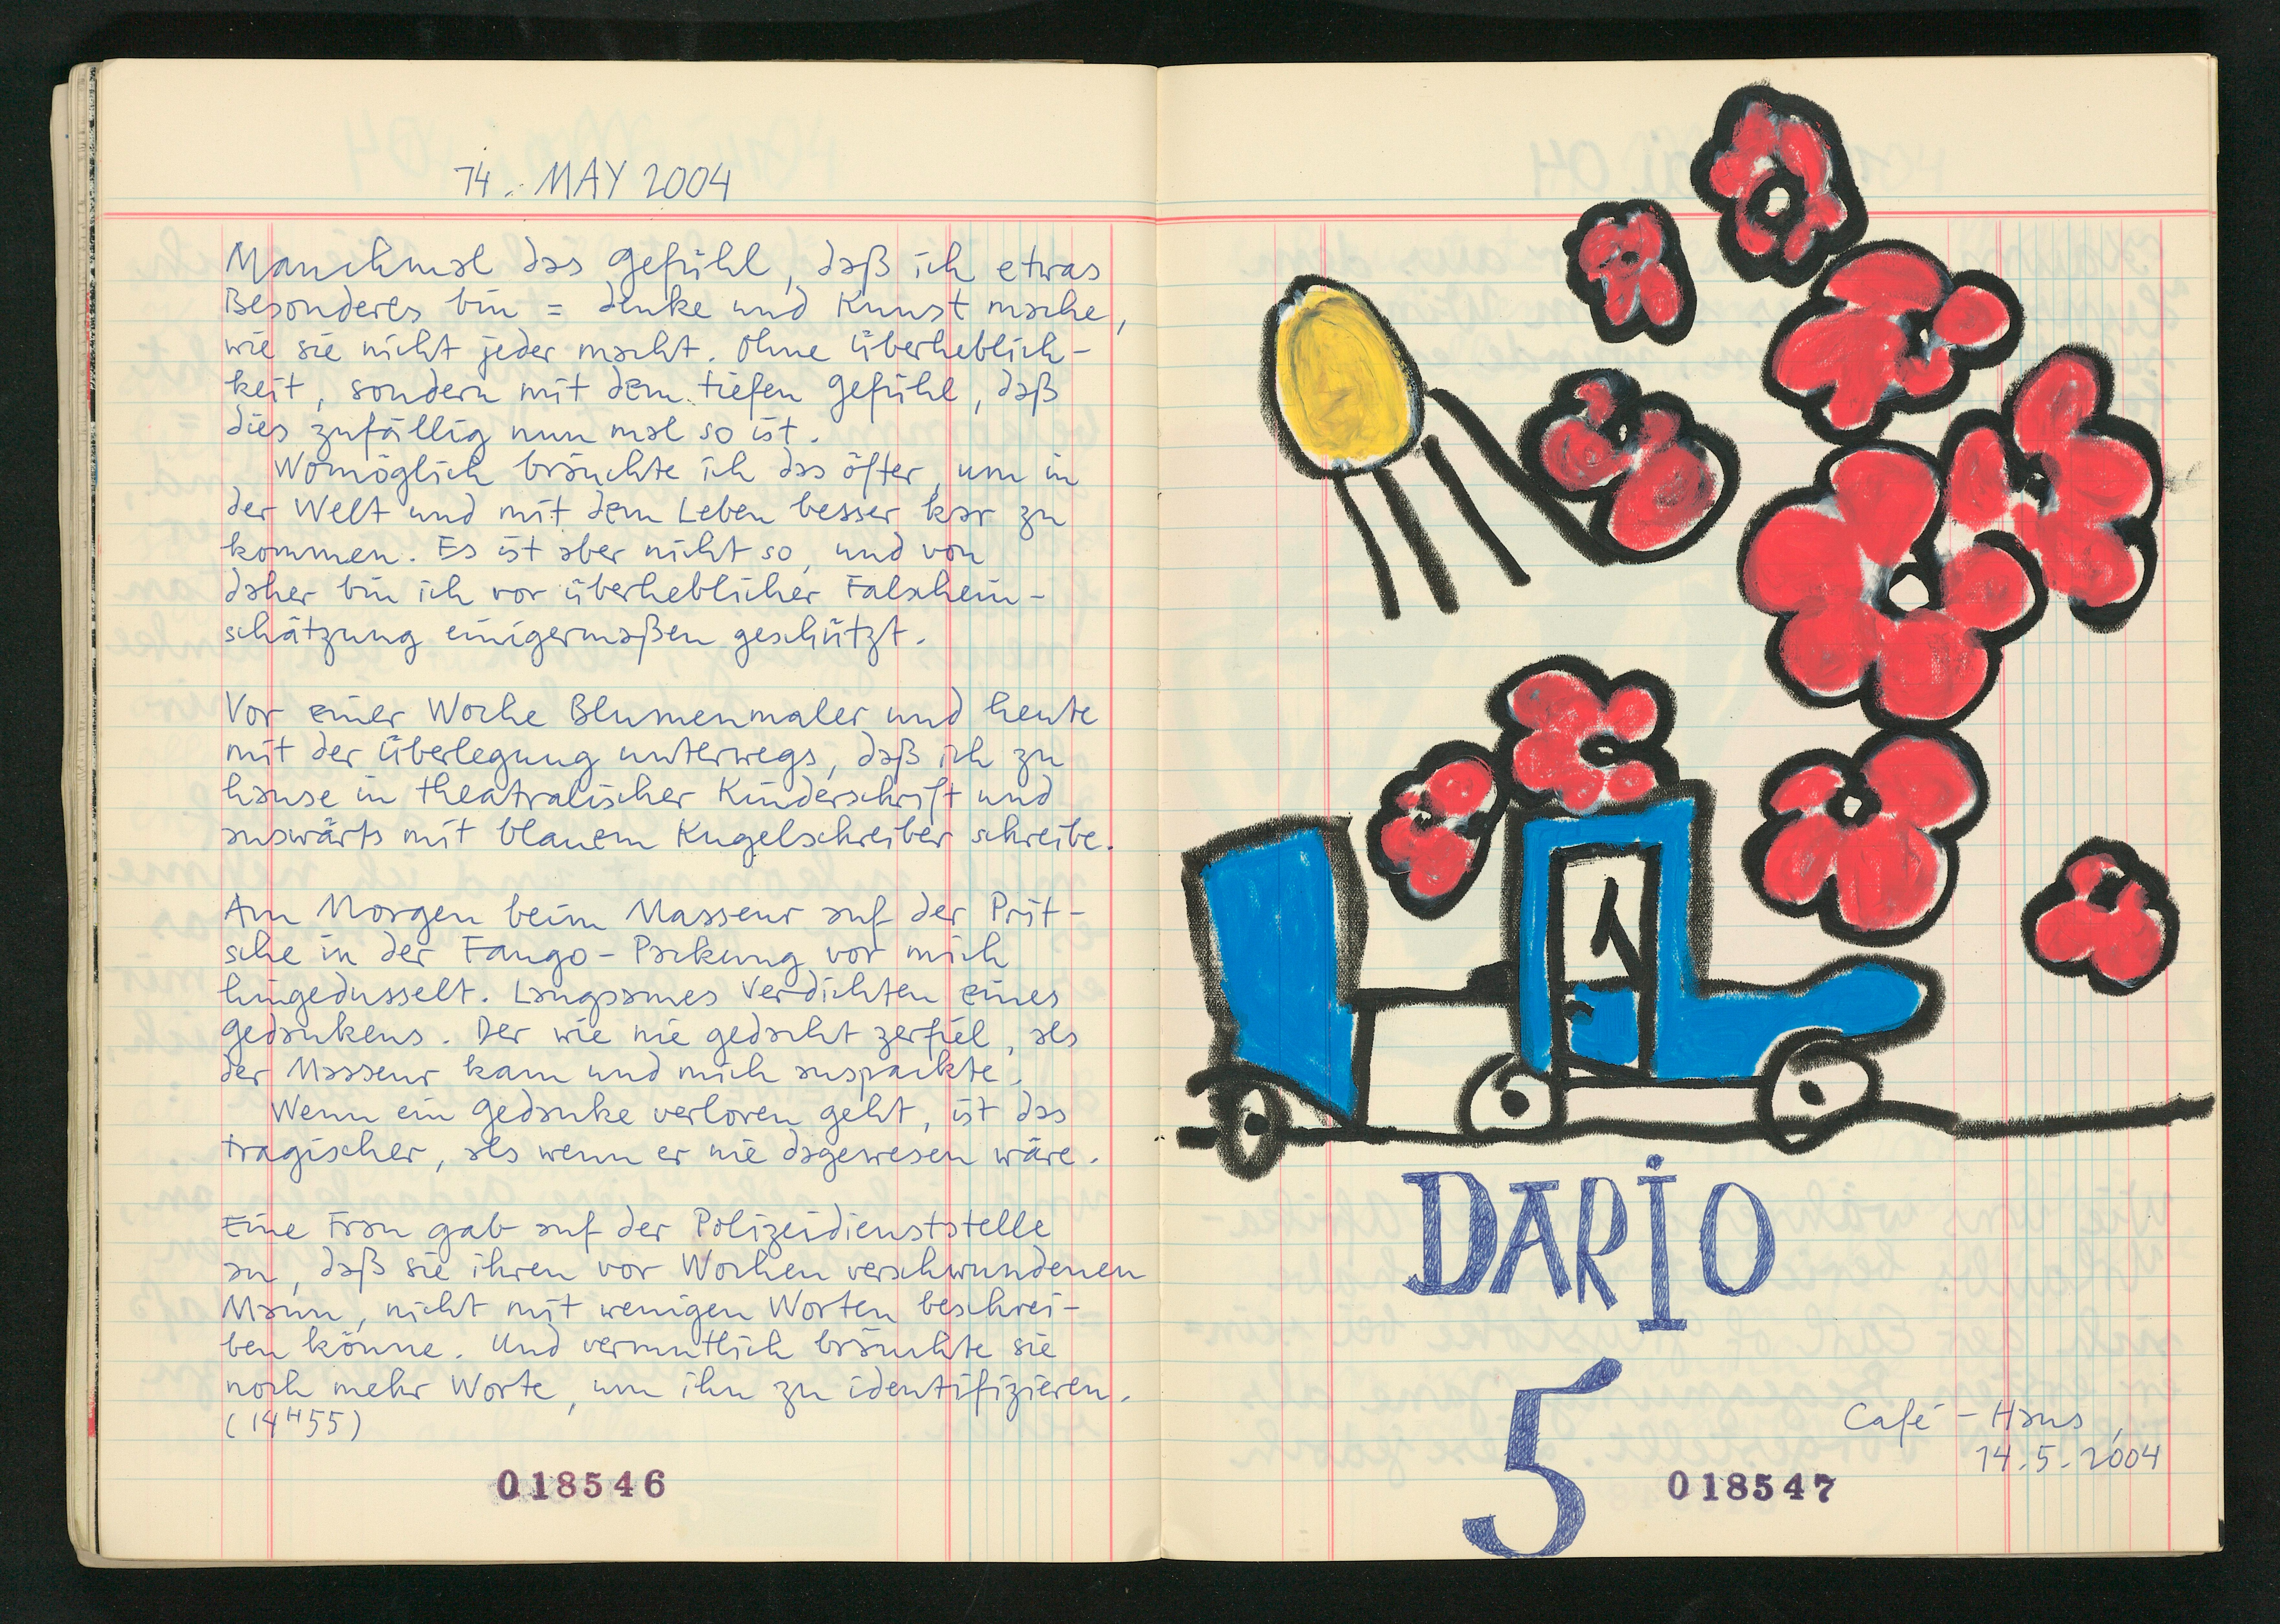 14. MAY 2004
Manchmal das Gefühl, daß ich etwas
Besonderes bin = denke und Kunst mache,
wie sie nicht jeder macht. Ohne Überheblich-
keit, sondern mit dem tiefen Gefühl, daß
dies zufällig nun mal so ist.
Womöglich bräuchte ich das öfter, um in
der Welt und mit dem Leben besser kar zu
kommen. Es ist aber nicht so, und von
daher bin ich vor überheblicher Falschein-
schätzung einigermaßen geschützt.
Vor einer Woche Blumenmaler und heute
mit der Überlegung unterwegs, daß ich zu
hause in theatralischer Kinderschrift und
auswärts mit blauem Kugelschreiber schreibe.
Am Morgen beim Masseur auf der Prit-
sche in der Fango-Packung vor mich
hingedusselt. Langsames Verdichten eines
Gedankens. Der wie nie gedacht zerfiel, als
der Masseur kam und mich auspackte.
Wenn ein Gedanke verloren geht, ist das
tragischer, als wenn er nie dagewesen wäre.
Eine Frau gab auf der Polizeidienststelle
an, daß sie ihren vor Wochen verschwundenen
Mann, nicht mit wenigen Worten beschrei-
ben könne. Und vermutlich bräuchte sie
noch mehr Worte, um ihn zu identifizieren.
(14H55)
018546
DARIO
5
Café-Haus,
14.5.2004
018547